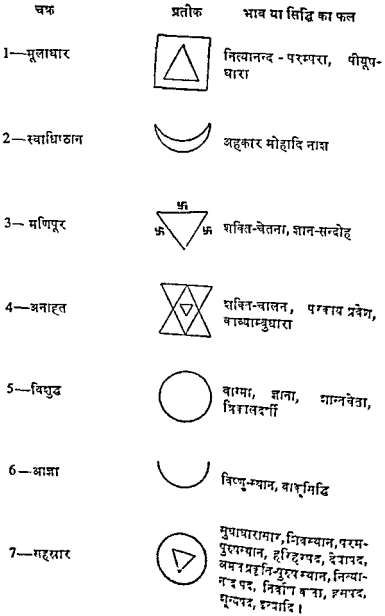 चक्र प्रतीक भाव या सिद्धि का फल
1—मूलाधार नित्यानन्द - परम्परा, पीयूष-
धारा
2—स्वाधिष्ठान अहकार मोहादि नाश
3— मणिपूर शक्ति-चेतना, ज्ञान-सन्दोह
4—अनाहत शक्ति-चालन, परकाय प्रवेश,
काव्याम्बुधारा
5—विशुद्ध वाग्मी, ज्ञानी, शान्तचेता,
त्रिकालदर्शी
6—आज्ञा विष्णु-स्थान, वाक्सिद्धि
7—सहस्रार सुधाधारासार, शिवस्थान, परम-
पुरुषस्थान, हरिहरपद, देवीपद,
प्रकृति-पुरुष स्थान, नित्या-
नन्द पद, निर्वाण कला, हसपद,
शून्यपद, इत्यादि ।